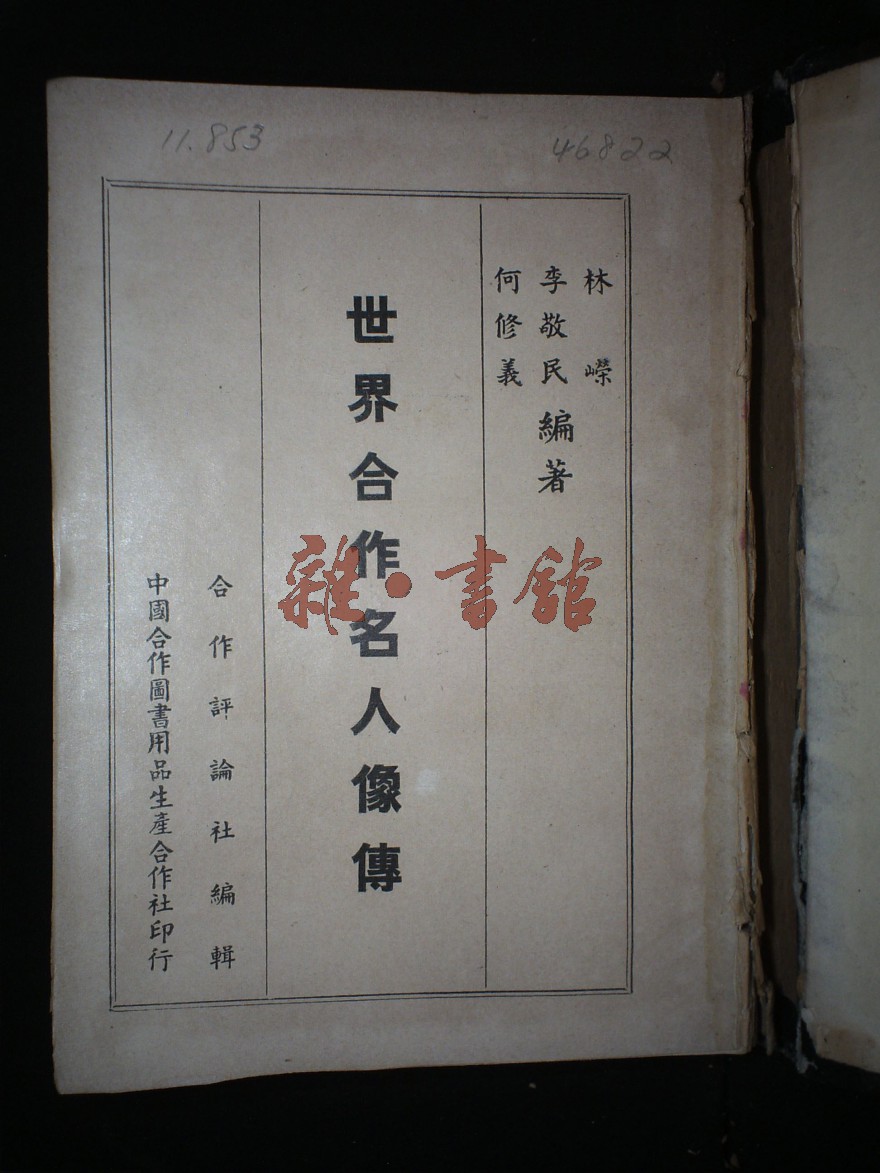 11.853
46822
林嶸
李敬民編著
何修義
世界合作名人像傳
合作評論社編輯
中國合作圖書用品生產合作社印行
雜·書館